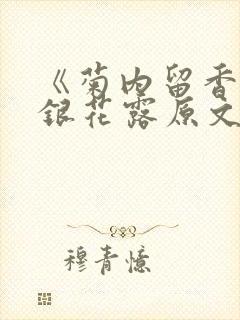 《菊内留香
銀花露原文
穆青憶